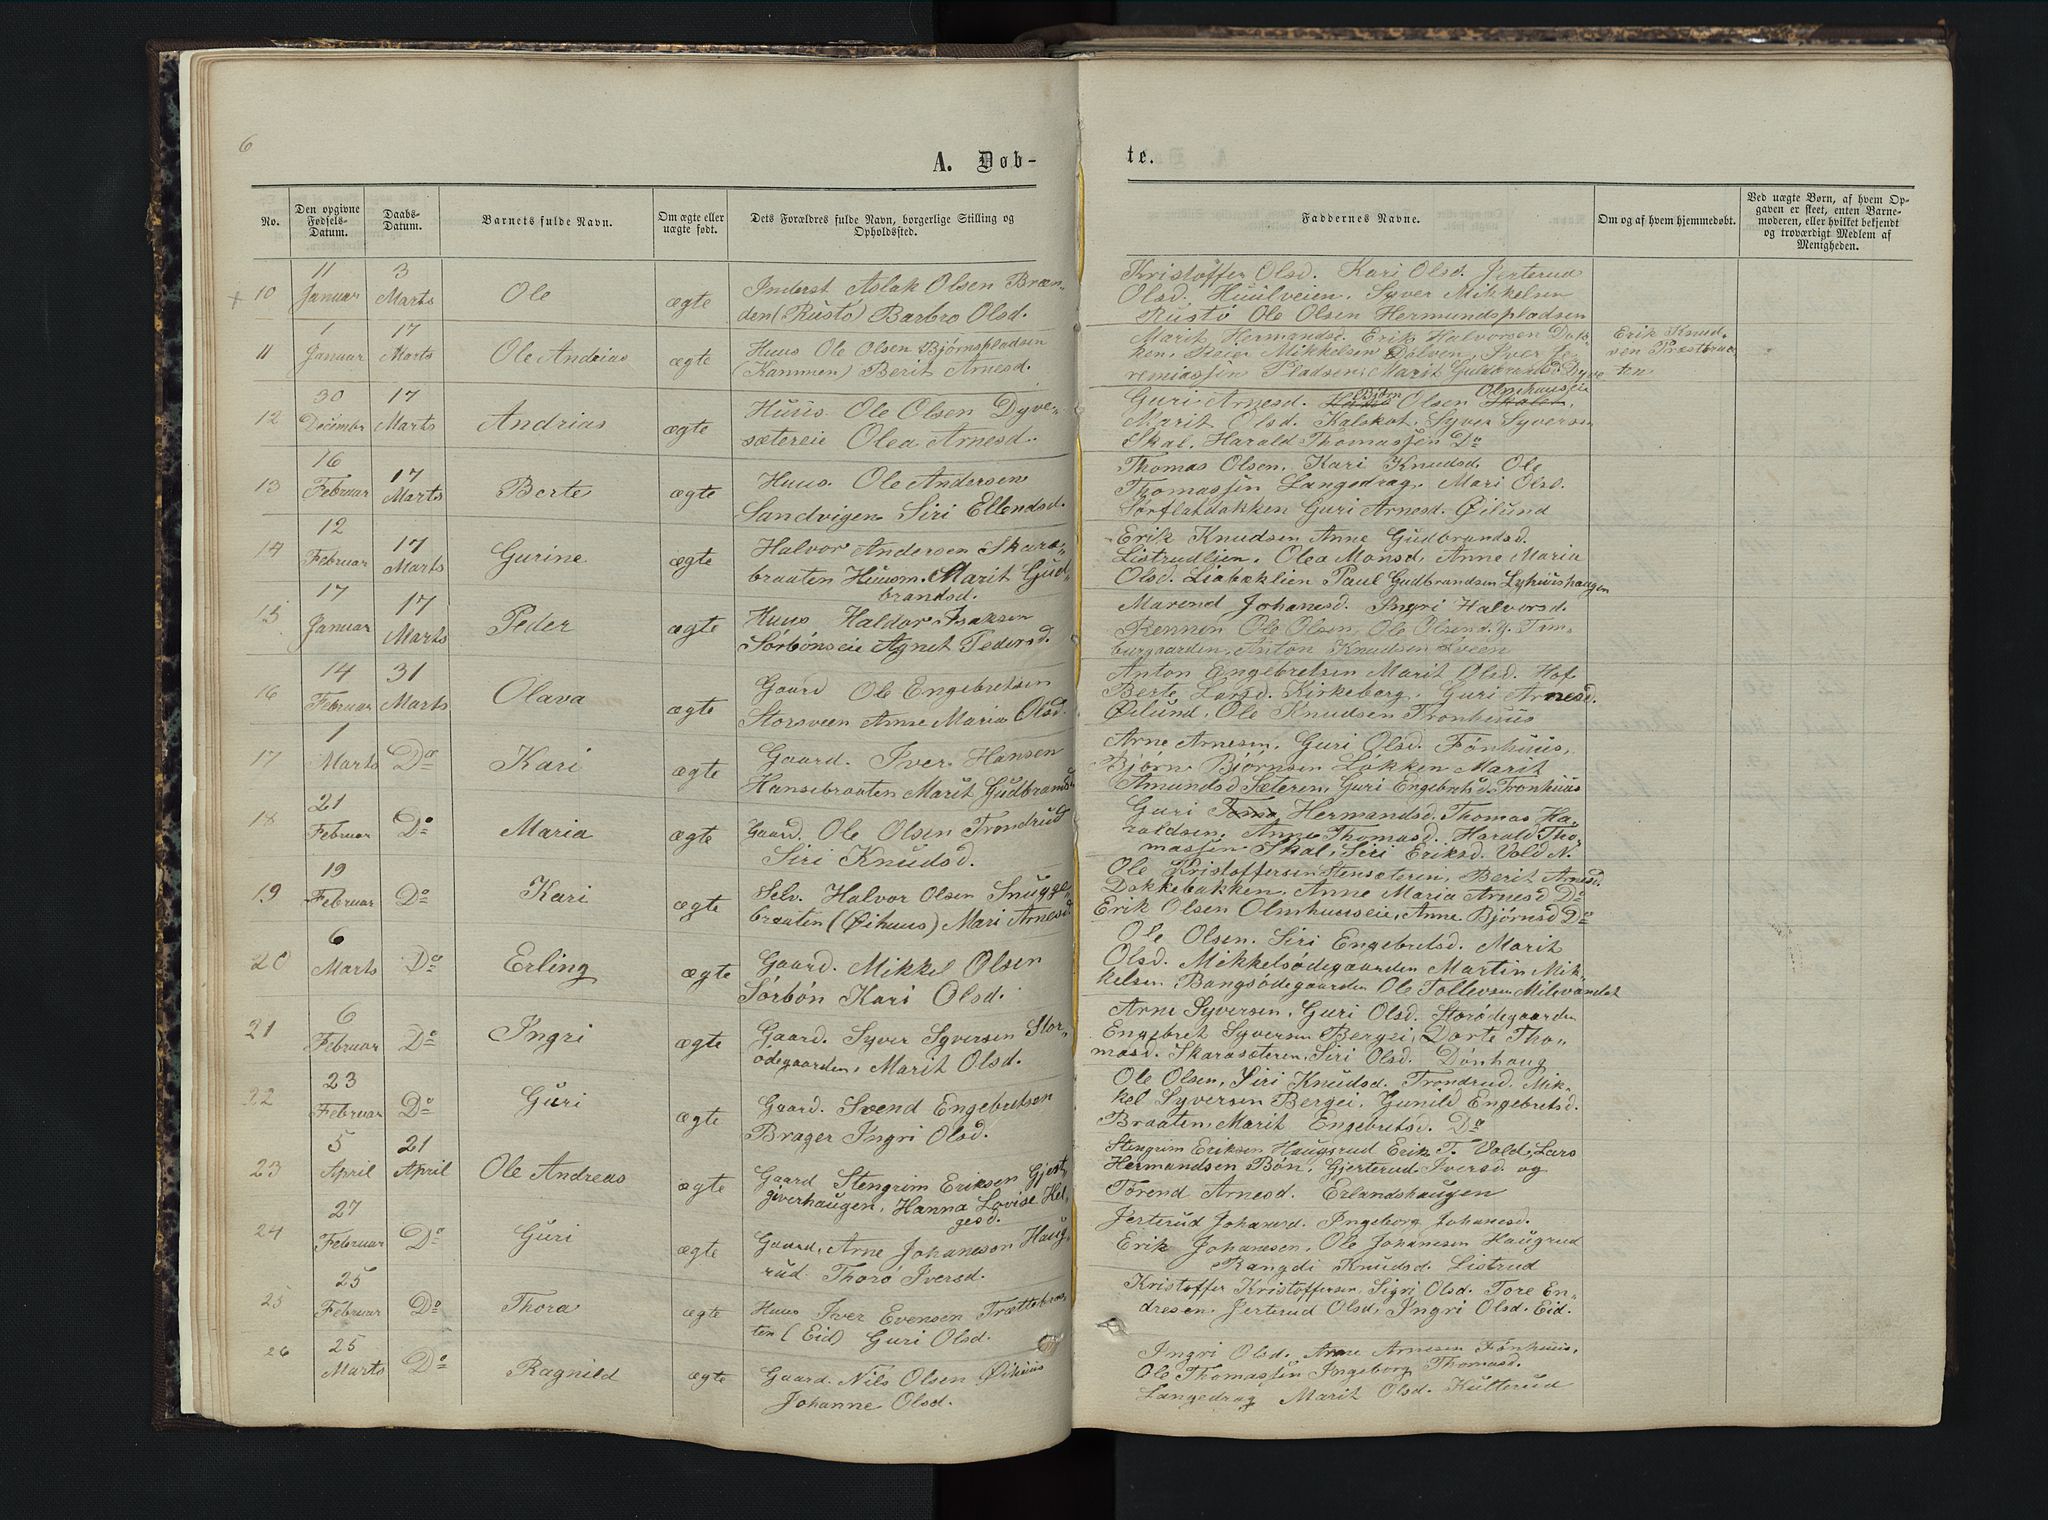 6
A. Døb-
te.
No.
Den opgivne Fødsels-Datum.
Daabs-Datum.
Barnets fulde Navn.
Om ægte eller uægte født.
Dets Forældres fulde Navn, borgerlige Stilling og Opholdssted.
Faddernes Navne.
Om og af hvem hjemmedøbt.
Ved uægte Børn, af hvem Opgaven er skeet, enten Barnemoderen, eller hvilket bekjendt og troværdigt Medlem af Menigheden.
10 11 Januar 3 Marts Ole ægte
Inderst Aslak Olsen Bræn-
den (Rustö) Barbro Olsd.
Kristoffer Olsd. Kari Olsd. Jerterud
Olsd. Huulveien. Syver Mikkelsen
Rustö Ole Olsen Hermundspladsen
11 1 Januar 17 Marts Ole Andrias ægte
Huus Ole Olsen Bjørnspladsen
(Kammen) Berit Arnesd.
Marit Hermandsd. Erik Halvorsen Dok-
ken, Reier Mikkelsen Dalven, Iver Je-
remiassen Pladsen, Marit Guldbrandsd Dyve
Erik Knud-
ten
12 30 Decembr 17 Marts Andrias ægte
Huus. Ole Olsen Dyve-
sætereie Olea Arnesd.
Guri Arnesd. Bjørn Olsen Olmhuuseie
Marit Olsd. Kalskot. Syver Syversen
Skal. Harald Thomassen Do
13 16 Februar 17 Marts Berte ægte
Huus. Ole Andersen
Sandvigen Siri Ellendsd.
Thomas Olsen. Kari Knudsd. Ole
Thomassen Langedrag. Mari Olsd.
Sørflatdakken Guri Arnesd. Øilund
14 12 Februar 17 Marts Gurine ægte
Halvor Andersen Skare-
braaten Huusm. Marit Gud-
brandsd.
Erik Knudsen Anne Gudbrandsd.
Listrudlien. Olea Monsd. Anne Maria
Olsd. Liabaklien Paul Gudbrandsen Lykuushaugen
15 17 Januar 17 Marts Peder ægte
Huus Haldor Isaksen
Sörböneie Agnet Pedersd.
Marend Johanesd. Ingri Halvorsd.
Rennen Ole Olsen, Ole Olsen d. y. Tem-
burgaarden, Anton Knudsen Sveen
16 14 Februar 31 Marts Olava ægte
Gaard Ole Engebretsen
Storsveen Anne Maria Olsd.
Anton Engebretsen Marit Olsd. Hof
Berte Larsd. Kirkeberg. Guri Arnesd.
Øilund. Ole Knudsen Tronhuus
17 1 Marts Do Kari ægte
Gaard. Iver Hansen
Hansebraaten Marit Gudbrandsd
Arne Arnesen, Guri Olsd. Fönhuus,
Bjørn Bjørnsen Løkken Marit
Amundsd Sæteren, Guri Engebretsd. Tronhuus
18 21 Februar Do Maria ægte
Gaard. Ole Olsen Trondrud
Siri Knudsd.
Guri Hermandsd. Thomas Ha-
raldsen, Anne Thomasd. Harald Tho-
massen Skal, Siri Eriksd. Vold N.
19 19 Februar Do Kari ægte
Selv. Halvor Olsen Snugge-
braaten (Øihuus) Mari Arnesd
Ole Kristoffersen Stensæteren, Berit Arnesd.
Dokkebakken. Anne Maria Arnesd Do
Erik Olsen Olmhuuseie, Anne Bjørnsd Do
20 6 Marts Do Erling ægte
Gaard. Mikkel Olsen
Sörbön Kari Olsd.
Ole Olsen. Siri Engebretsd. Marit
Olsd. Mikkelsödegaarden Martin Mik-
kelsen Bangsödegaarden Ole Tollevsen
21 6 Februar Do Ingri ægte
Gaard. Syver Syversen Stor-
ödegaarden, Marit Olsd.
Arne Syversen, Guri Olsd. Storödegaarden
Engebret Syversen Bergei, Dorte Tho-
masd. Skarasæteren, Siri Olsd. Dönhaug
22 23 Februar Do Guri ægte
Gaard. Svend Engebretsen
Brager Ingri Olsd.
Ole Olsen, Siri Knudsd. Trondrud. Mik-
kel Syversen Bergei, Gunild Engebretsd.
Braaten, Marit Engebretsd. Do
23 5 April 21 April Ole Andreas ægte
Gaard Stengrim Eriksen Gjest-
giverhaugen, Hanna Lovise Hel-
gesd.
Stengrim Eriksen Haugrud Erik T. Vold, Lars
Hermandsen Bön, Gjerterud Iversd. og
Torend Arnesd. Erlandshaugen
24 27 Februar Do Guri ægte
Gaard, Arne Johanesen Haug-
rud Thoro Iversd.
Jerterud Johanesd. Ingeborg Johanesd.
Erik Johanesen, Ole Johanesen Haugrud
Rangdi Knudsd. Listrud
25 25 Februar Do Thora ægte
Huus Iver Evensen Trættebraa-
ten (Eid) Guri Olsd.
Kristoffer Kristoffersen, Sigri Olsd. Tore En-
dresen, Jerterud Olsd, Ingri Olsd. Eid.
26 25 Marts Do Ragnild ægte
Gaard. Nils Olsen Øihuus
Johanne Olsd.
Ingri Olsd. Arne Arnesen Fönhuus,
Ole Thomassen Ingeborg Thomasd.
Langedrag Marit Olsd. Kutterud